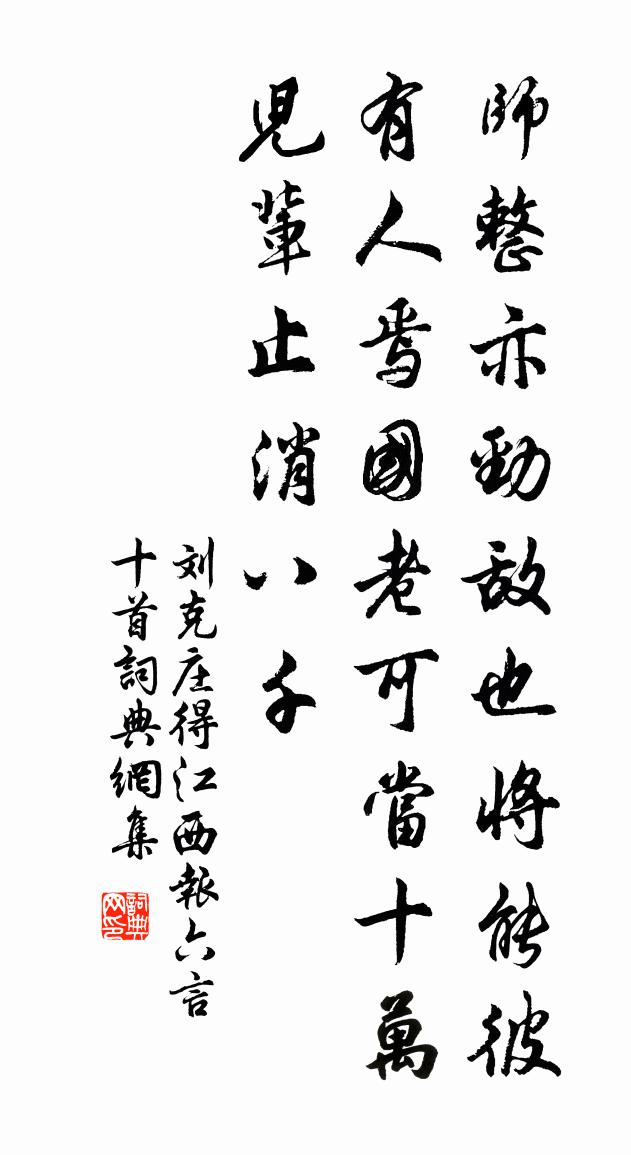 師整亦勁敵也將能彼
有人焉國老可當十萬
兒輩止消八千
刘克庄得江西報六言
十首詞典網集
詞典网印